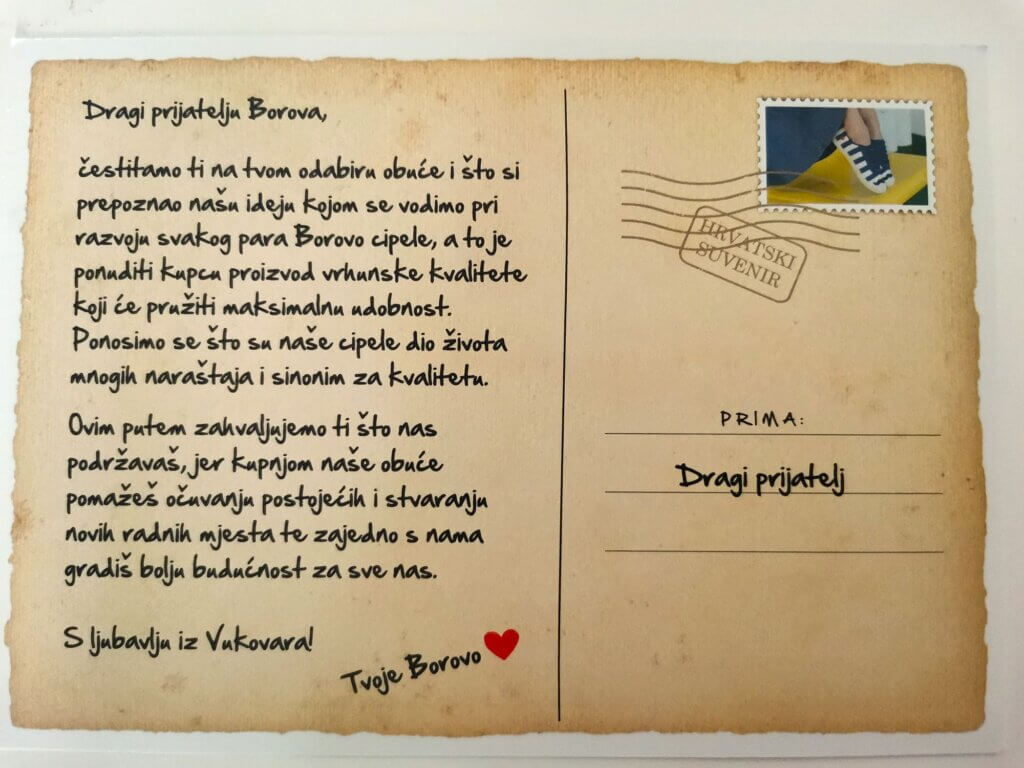 Dragi prijatelju Borova,
čestitamo ti na tvom odabiru obuće i što si
prepoznao našu ideju kojom se vodimo pri
razvoju svakog para Borovo cipele, a to je
ponuditi kupcu proizvod vrhunske kvalitete
koji će pružiti maksimalnu udobnost.
Ponosimo se što su naše cipele dio života
mnogih naraštaja i sinonim za kvalitetu.
Ovim putem zahvaljujemo ti što nas
podržavaš, jer kupnjom naše obuće
pomažeš očuvanju postojećih i stvaranju
novih radnih mjesta te zajedno s nama
gradiš bolju budućnost za sve nas.
S ljubavlju iz Vukovara!
Tvoje Borovo
HRVATSKI
SUVENIR
PRIMA:
Dragi prijatelj